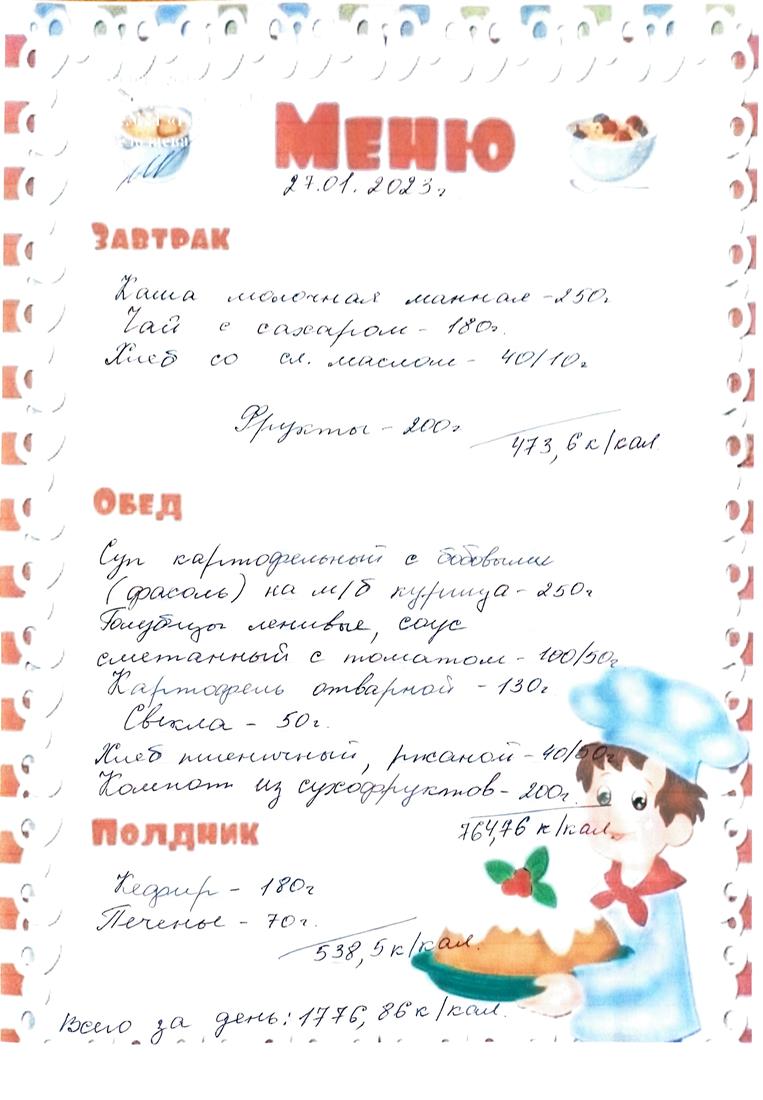 Меню
27.01.2023г
Завтрак
Каша молочная манная - 250г
Чай с сахаром - 180г.
Хлеб со сл. маслом - 40/10г
Фрукты - 200г
473,6 к/кал
Обед
Суп картофельный с бобовыми
(фасоль) на м/б курица - 250г
Голубцы ленивые, соус
сметанный с томатом - 100/50г
Картофель отварной - 130г
Свекла - 50г.
Хлеб пшеничный, ржаной - 40/50г
Компот из сухофруктов - 200г.
764,76 к/кал
Полдник
Кефир - 180г
Печенье - 70г.
538,5 к/кал.
Всего за день: 1776,86 к/кал.